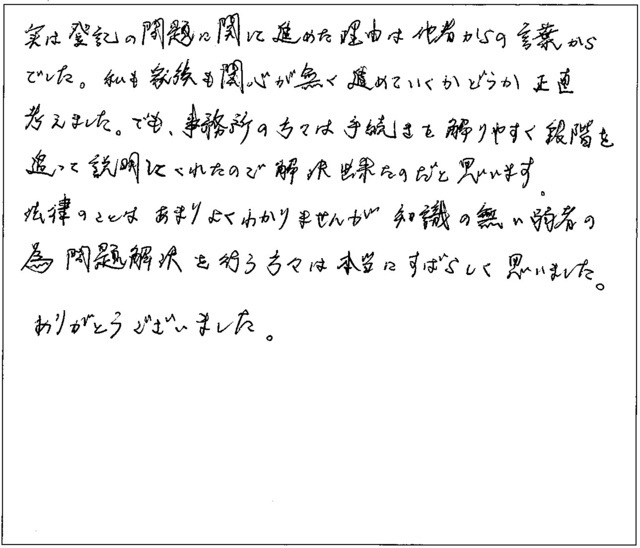 実は登記の問題に関して進めた理由は他者からの言葉から
でした。私も家族も関心が無く進めていくかどうか正直
考えました。でも、事務所の方々は手続きを解りやすく段階を
追って説明してくれたので解決出来たのだと思います。
法律のことはあまりよくわかりませんが知識の無い弱者の
為問題解決を行う方々は本当にすばらしく思いました。
ありがとうございました。